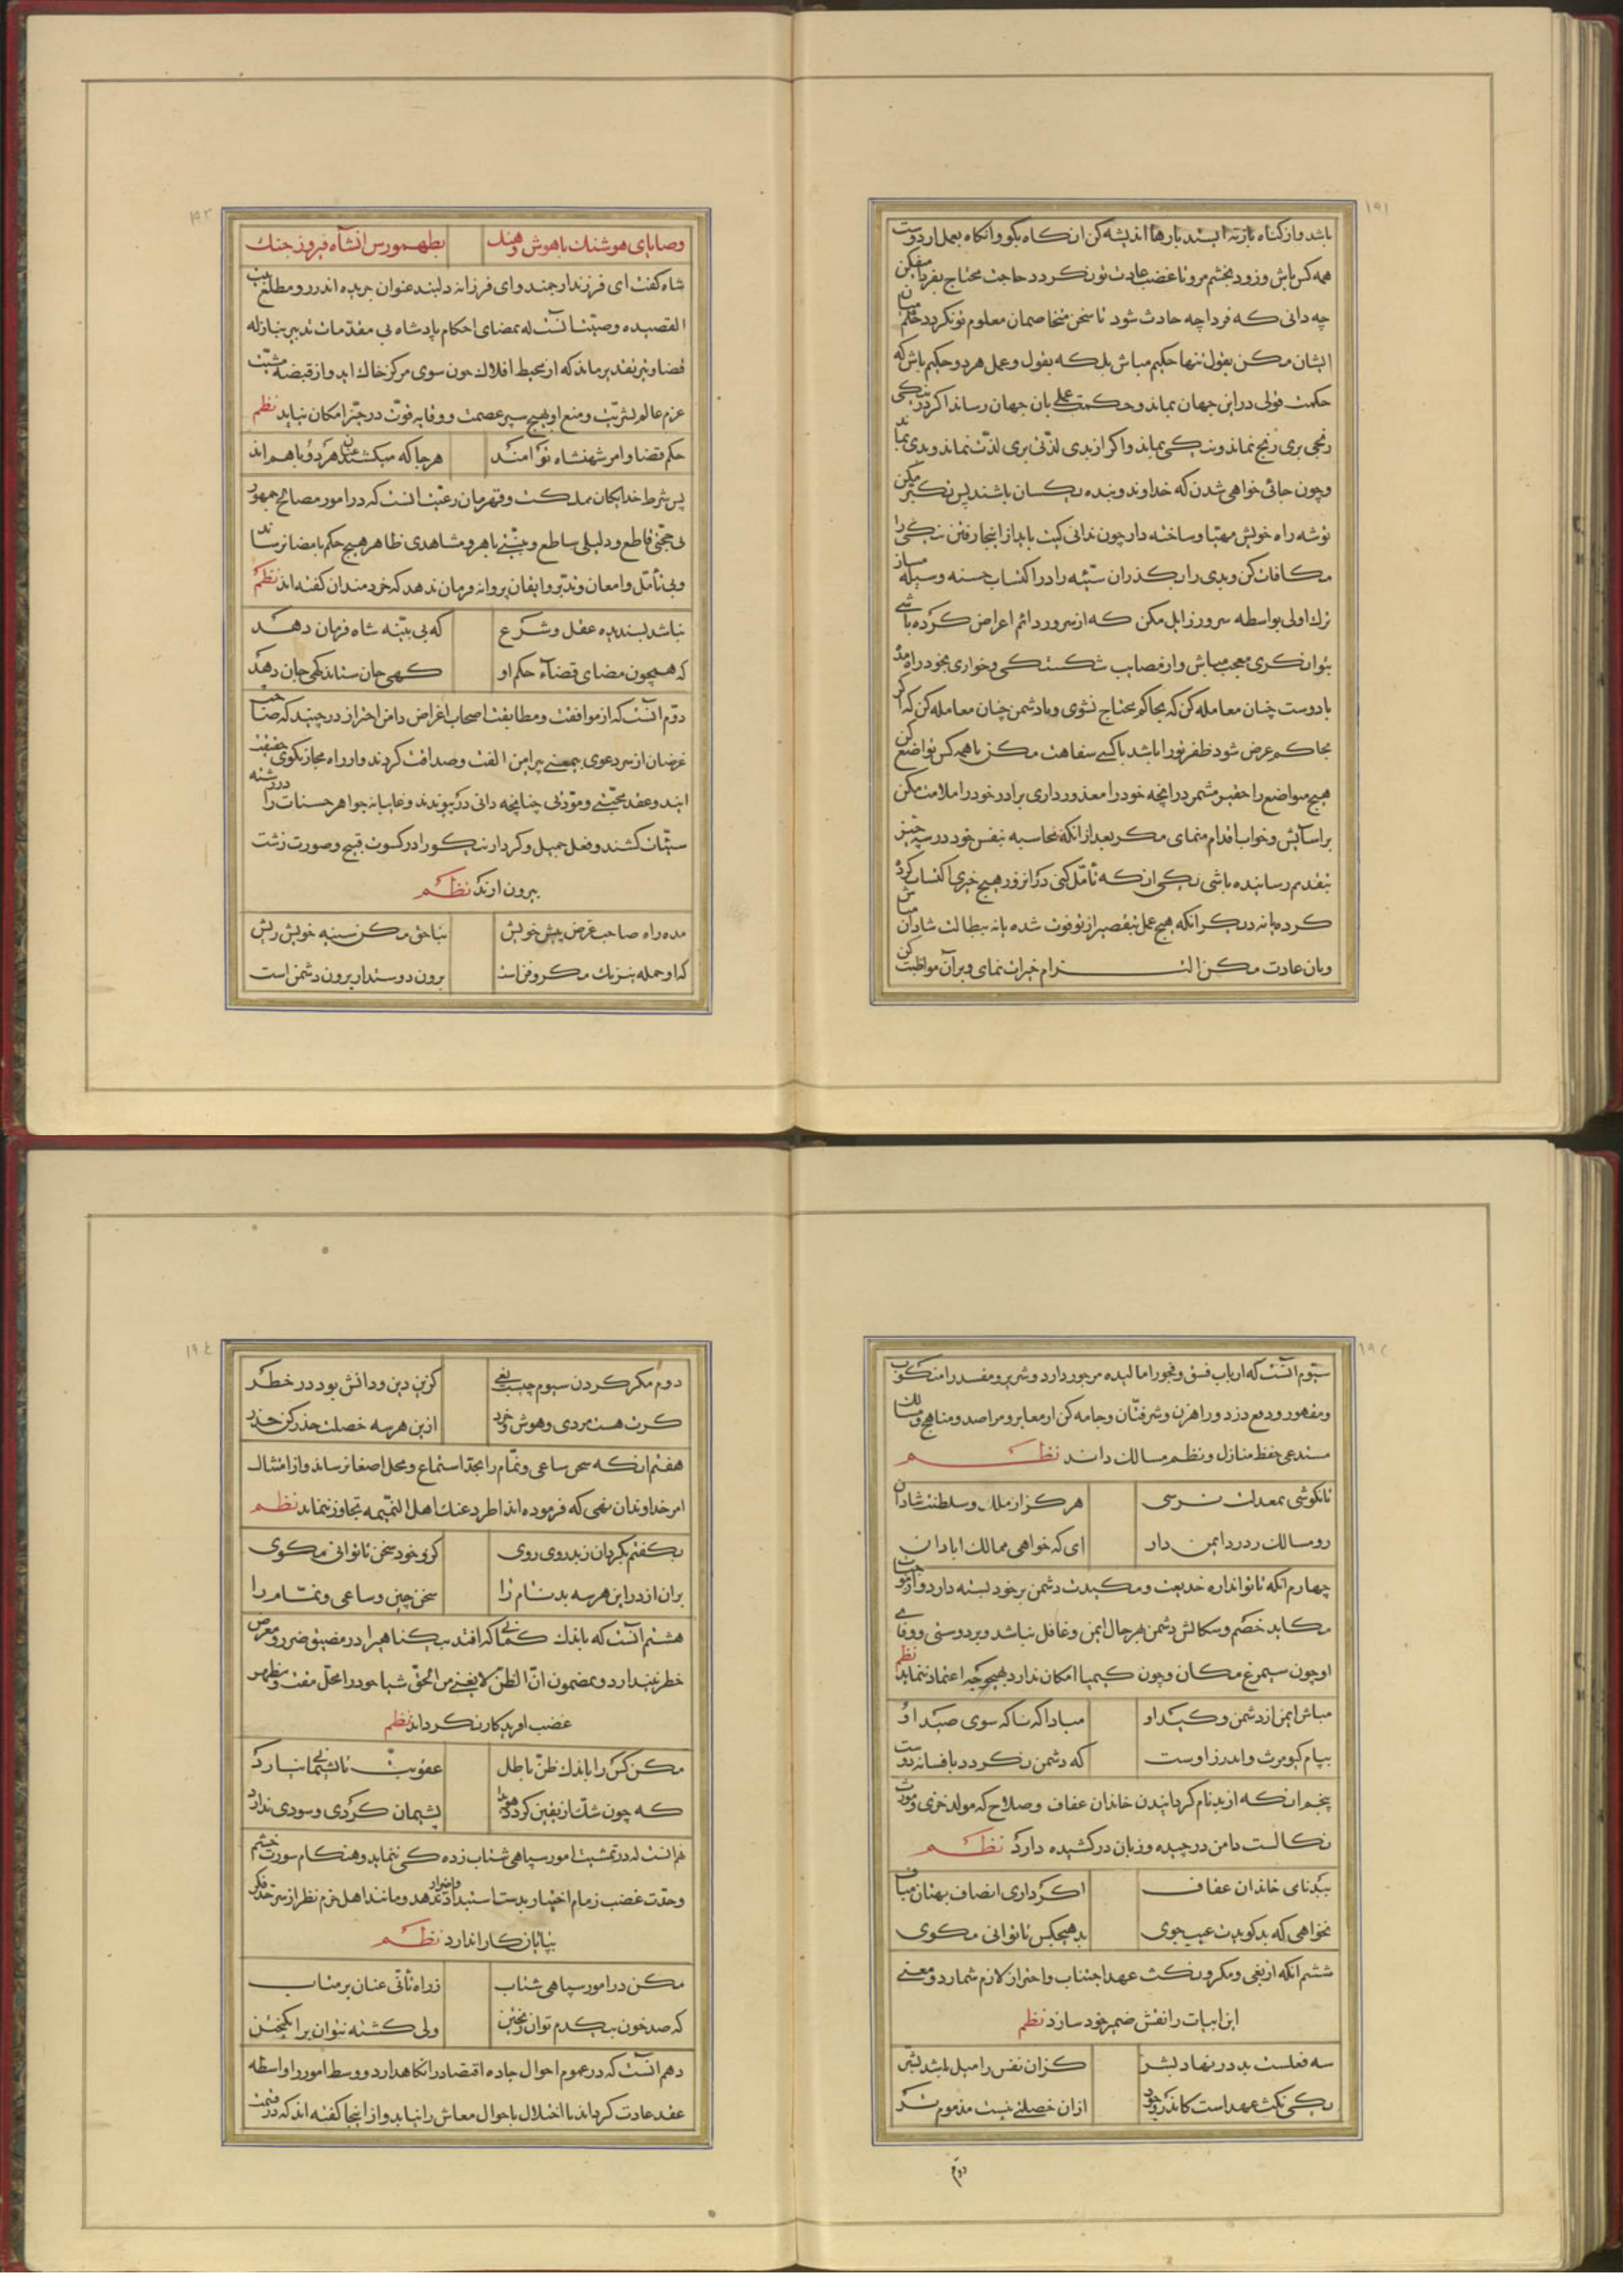 ۱۹۱
باشد و از گناه
همه کس باش و زود بخشم مرو تا غضب عادت تو نکردد حاجت محتاج بفردا میفکن
چه دانی که فردا چه حادث شود تا سخن متخاصمان معلوم تو نکردد حکم میان
ایشان مکن بقول تنها حکیم مباش بلکه بقول و عمل هر دو حکیم باش که
حکمت قولی در این جهان بماند و حکمت عملی بان جهان رساند اکر در نیکی
رنجی بری رنج نماند و نیکی بماند و اکر از بدی لذتی بری لذت نماند و بدی بماند
و چون جائی خواهی شدن که خداوند و بنده یکسان باشند پس تکبر مکن
توشه راه خویش مهیا و ساخته دار چون ندانی کیت باید از اینجا رفتن نیکی را
مکافات کن و بدی را بکذران سیئه را در اکتساب حسنه وسیله مساز
ترک اولی بواسطه سرور زایل مکن که از سرور دائم اعراض کرده باشی
بتوانکری معجب مباش و از مصایب شکستکی و خواری بخود راه مده
با دوست چنان معامله کن که بحاکم محتاج نشوی و با دشمن چنان معامله کن که اکر
بحاکم عرض شود ظفر تو را باشد با کسی سفاهت مکن با همه کس تواضع کن
هیچ متواضع را حقیر مشمر در انچه خود را معذور داری برادر خود را ملامت مکن
بر آسایش و خواب اقدام منمای مکر بعد از انکه محاسبه نفس خود در سه چیز
بتقدیم رسانیده باشی یکی انکه تأمل کنی که در انروز هیچ خیری اکتساب کرده
کرده یا نه دیکر انکه هیچ عمل بتقصیر از تو فوت شده یا نه ببطالت شادان مباش
و بان عادت مکن التزام خیرات نمای و بر آن مواظبت کن
۱۹۲
وصایای هوشنک با هوش و هنک
بطهمورس انشاه فیروز جنک
شاه کفت ای فرزند ارجمند و ای فرزانه دلبند عنوان جریده اندرز و مطلع بیت
القصیده وصیتنا آنست که بمضای احکام پادشاه بی مقدمات تدبیر بنازله
قضا و تیر تقدیر ماند که از محیط افلاک چون سوی مرکز خاک اید و از قبضه مشیت
عزم عالم بشریت و منع او بهیچ سپر عصمت و وقایه قوت در حیز امکان نیاید نظم
حکم قضا و امر شهنشاه توامند
هر جا که میکشند عنان هر دو با هم اند
پس شرط خدایکان مملکت و قهرمان رعیت انست که در امور مصالح جمهور
بی حجتی قاطع و دلیلی ساطع و بینتی باهر و شاهدی ظاهر هیچ حکم بامضا نرساند
و بی تأمل و امعان و تدبر و ایقان پروانه فرمان ندهد که خردمندان کفته اند نظم
نباشد پسندیده عقل و شرع
که بی بینه شاه فرمان دهد
که همچون مضای قضاء حکم او
کهی جان ستاند کهی جان دهد
دوم انست که از موافقت و مطابقت اصحاب اغراض دامن احتراز درچیند که صاحب
غرضان از سر دعوی بیمعنی پیرامن الفت و صداقت کردند و از راه مجاز بکوی حقیقت
ایند و عقد محبتی و مودتی چنانچه دانی در پیوندند و غایبانه جواهر حسنات را در رشته
سیئات کشند و فعل جمیل و کردار نیکو را در کسوت قبیح و صورت زشت
بیرون ارند نظم
مده راه صاحب غرض پیش خویش
بناحق مکن سینه خویش ریش
که او جمله نیرنک و مکر و فن است
برون دوستدار درون دشمن است
سیوم انست که ارباب فسق و فجور را مالیده مزجور دارد و شریر و مفسد را منکوب
و مقهور و دفع دزد و راهزن و شر فتان و جامه کن از معابر و مراصد و مناهج و مسالک
مستدعی حفظ منازل و نظم مسالک داند نظم
تا نکوشی بمعدلت نرسی
هرکز از ملک و سلطنت شادان
رو مسالک ز دزد ایمن دار
ای که خواهی ممالک ابادان
چهارم انکه تا تواند راه خدیعت و مکیدت دشمن بر خود بسته دارد و از
مکاید خصم و سکالش دشمن بهر حال ایمن و غافل نباشد و بر دوستی و وفای
او چون سیمرغ مکان و چون کیمیا امکان ندارد بهیچوجه اعتماد ننماید نظم
مباش ایمن از دشمن و کید او
مبادا که ناکه سوی صید او
پیام کیومرث و اندرز اوست
که دشمن نکردد بافسانه دوست
پنجم انکه از بدنام کردانیدن خاندان عفاف و صلاح که مولد خزی و مورث
نکالست دامن درچیده و زبان درکشیده دارد نظم
ببدنامی خاندان عفاف
اکر داری انصاف پنهان مباف
نخواهی که بد کویدت عیب جوی
بد هیچکس تا توانی مکوی
ششم انکه از بغی و مکر و نکث عهد اجتناب و احتراز لازم شمارد و معنی
این ابیات را نقش ضمیر خود سازد نظم
سه فعلست بد در نهاد بشر
کزان نفس را میل باشد بشر
یکی نکث عهد است کاندر وجود
ازان خصلتی نیست مذموم تر
دوم
۱۹٤
دوم مکر کردن سیوم چیست بغی
کزین دین و دانش بود در خطر
کرت هست مردی و هوش و خرد
ازین هر سه خصلت حذر کن حذر
هفتم انکه سخن ساعی و نمام را بجد استماع و محل اصغا نرساند و از امتثال
امر خداوندان نهی که فرموده اند اطرد عنک اهل النمیمه تجاوز ننماید نظم
بکفتم بکردان ز بد روی روی
کزو خود سخن تا توانی مکوی
بران از در این هر سه بدنام را
سخن چین و ساعی و نمام را
هشتم انست که باندک کمانی که افتد بیکناهیرا در مضیق ضرر و معرض
خطر نیندازد و بمضمون ان الظن لا یغنی من الحق شیئا خود را محل مقت و مظهر
غضب افریدکار نکرداند نظم
مکن کس را باندک ظن باطل
عقوبت تا پشیمانی نیارد
که چون شک از یقین کردد هویدا
پشیمان کردی و سودی ندارد
نهم انست که در تمشیت امور سپاهی شتاب زدکی ننماید و هنکام سورت خشم
و حدت غضب زمام اختیار بدست استبداد ندهد و مانند اهل حزم نظر از سر حد فکر
بپایان کار اندازد نظم
مکن در امور سپاهی شتاب
ز راه تأنی عنان بر متاب
که صد خون بیکدم توان ریختن
ولی کشته نتوان برانکیختن
دهم انست که در عموم احوال جاده اقتصاد را نکاهدارد و وسط امور را واسطه
عقد عادت کرداند تا اختلال باحوال معاش راه نیابد و از اینجا کفته اند که در قیمت